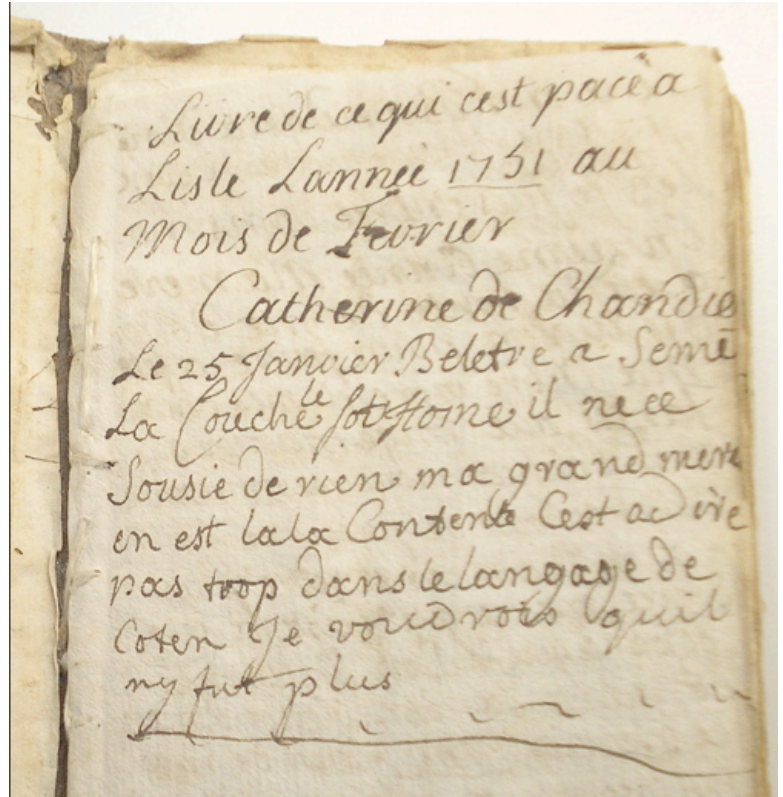 Livre de ce qui cest pacé a
Lisle Lanneé 1751 au
Mois de Fevrier
Catherine de Chandie
Le 25 Janvier Beletre a Semé
La Couche le sot home il nece
Sousie de rien ma grand mere
en est lala Contente Cest a dire
pas trop dans le langage de
Coten Je voudrois quil
ny fut plus